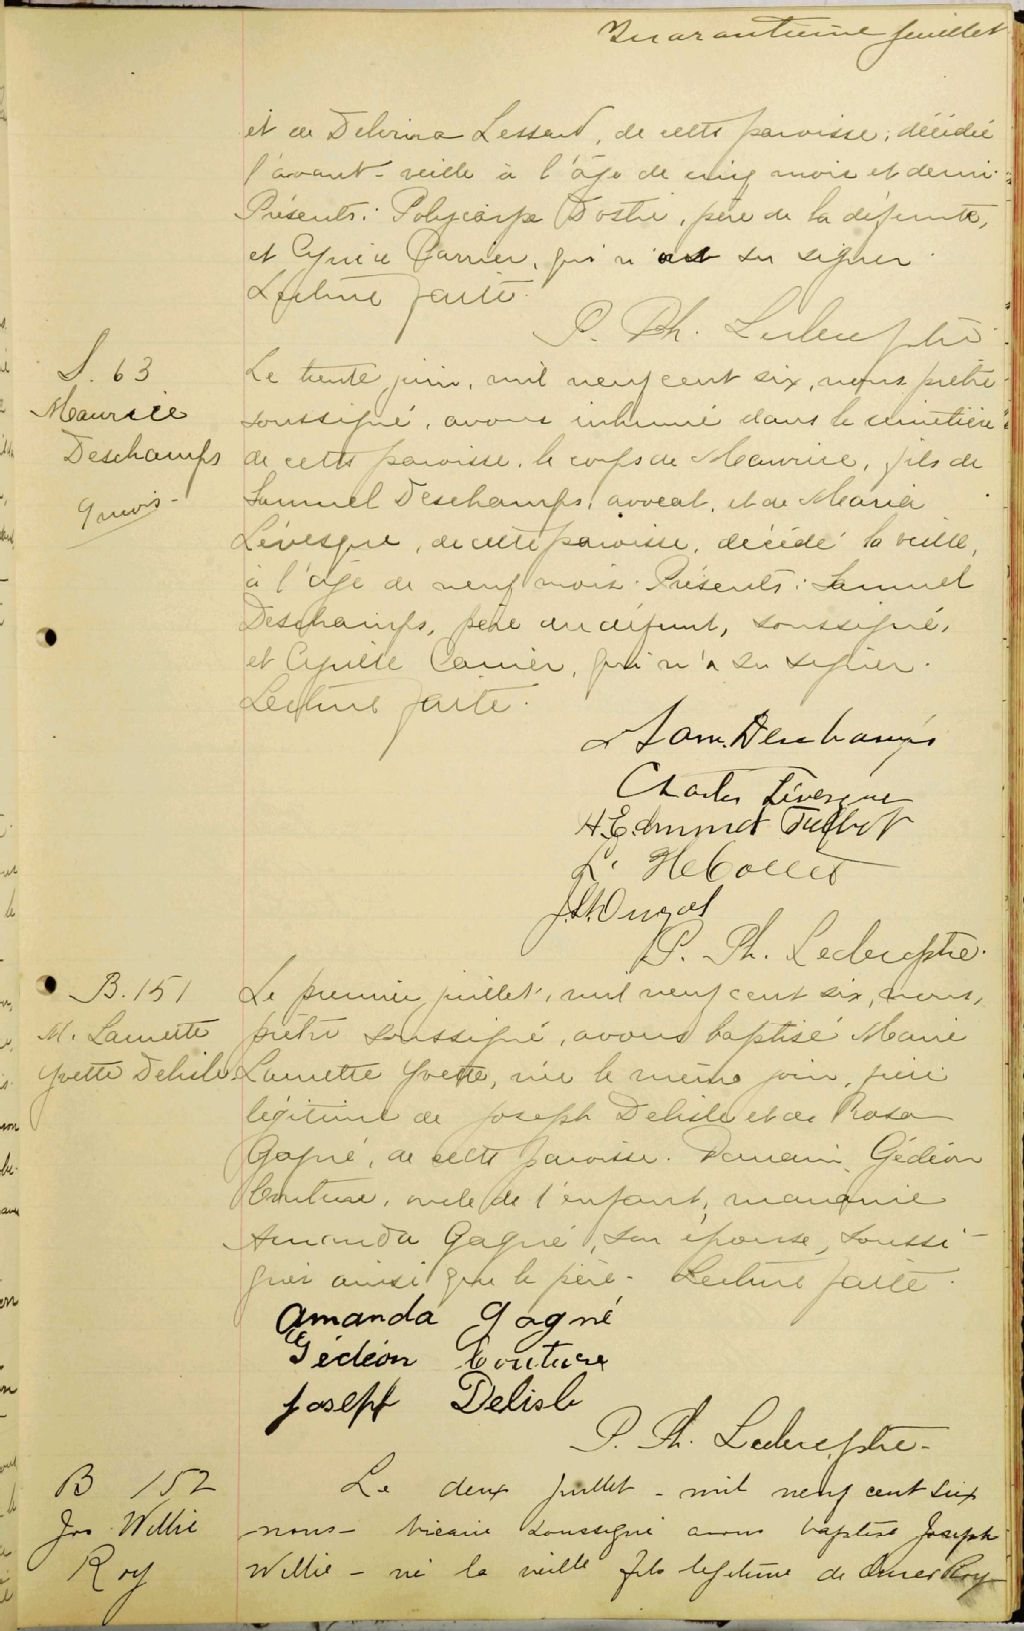 Quarantième feuillet
et de Delvina Lessard, de cette paroisse, décédée
l'avant-veille à l'âge de cinq mois et demi.
Présents: Polycarpe Dostie, père de la défunte,
et Cyrice Carrier, qui n'ont su signer.
Lecture faite.
P. Ph. Leclerc ptre
S. 63
Maurice
Deschamps
9 mois
Le trente juin, mil neuf cent six, nous prêtre
soussigné, avons inhumé dans le cimetière
de cette paroisse, le corps de Maurice, fils de
Samuel Deschamps, avocat, et de Maria
Lévesque, de cette paroisse, décédé la veille,
à l'âge de neuf mois. Présents: Samuel
Deschamps, père du défunt, soussigné,
et Cyrice Carrier, qui n'a su signer.
Lecture faite.
Sam. Deschamps
Charles Lévesque
H. Edmond Talbot
P. Ph. Leclerc ptre.
B. 151
M. Laurette
Yvette Delisle
Le premier juillet, mil neuf cent six, nous,
prêtre soussigné, avons baptisé Marie
Laurette Yvette, née le même jour, fille
légitime de Joseph Delisle et de Rosa
Gagné, de cette paroisse. Parrain, Gédéon
Couture, oncle de l'enfant, marraine
Amanda Gagné, son épouse, soussi-
gnés ainsi que le père. Lecture faite.
Amanda Gagné
Gédéon Couture
Joseph Delisle
P. Ph. Leclerc, ptre.
B 152
Jos Willie
Roy
Le deux juillet - mil neuf cent six
nous - vicaire soussigné avons baptisé Joseph
Willie - né la veille fils légitime de Omer Roy